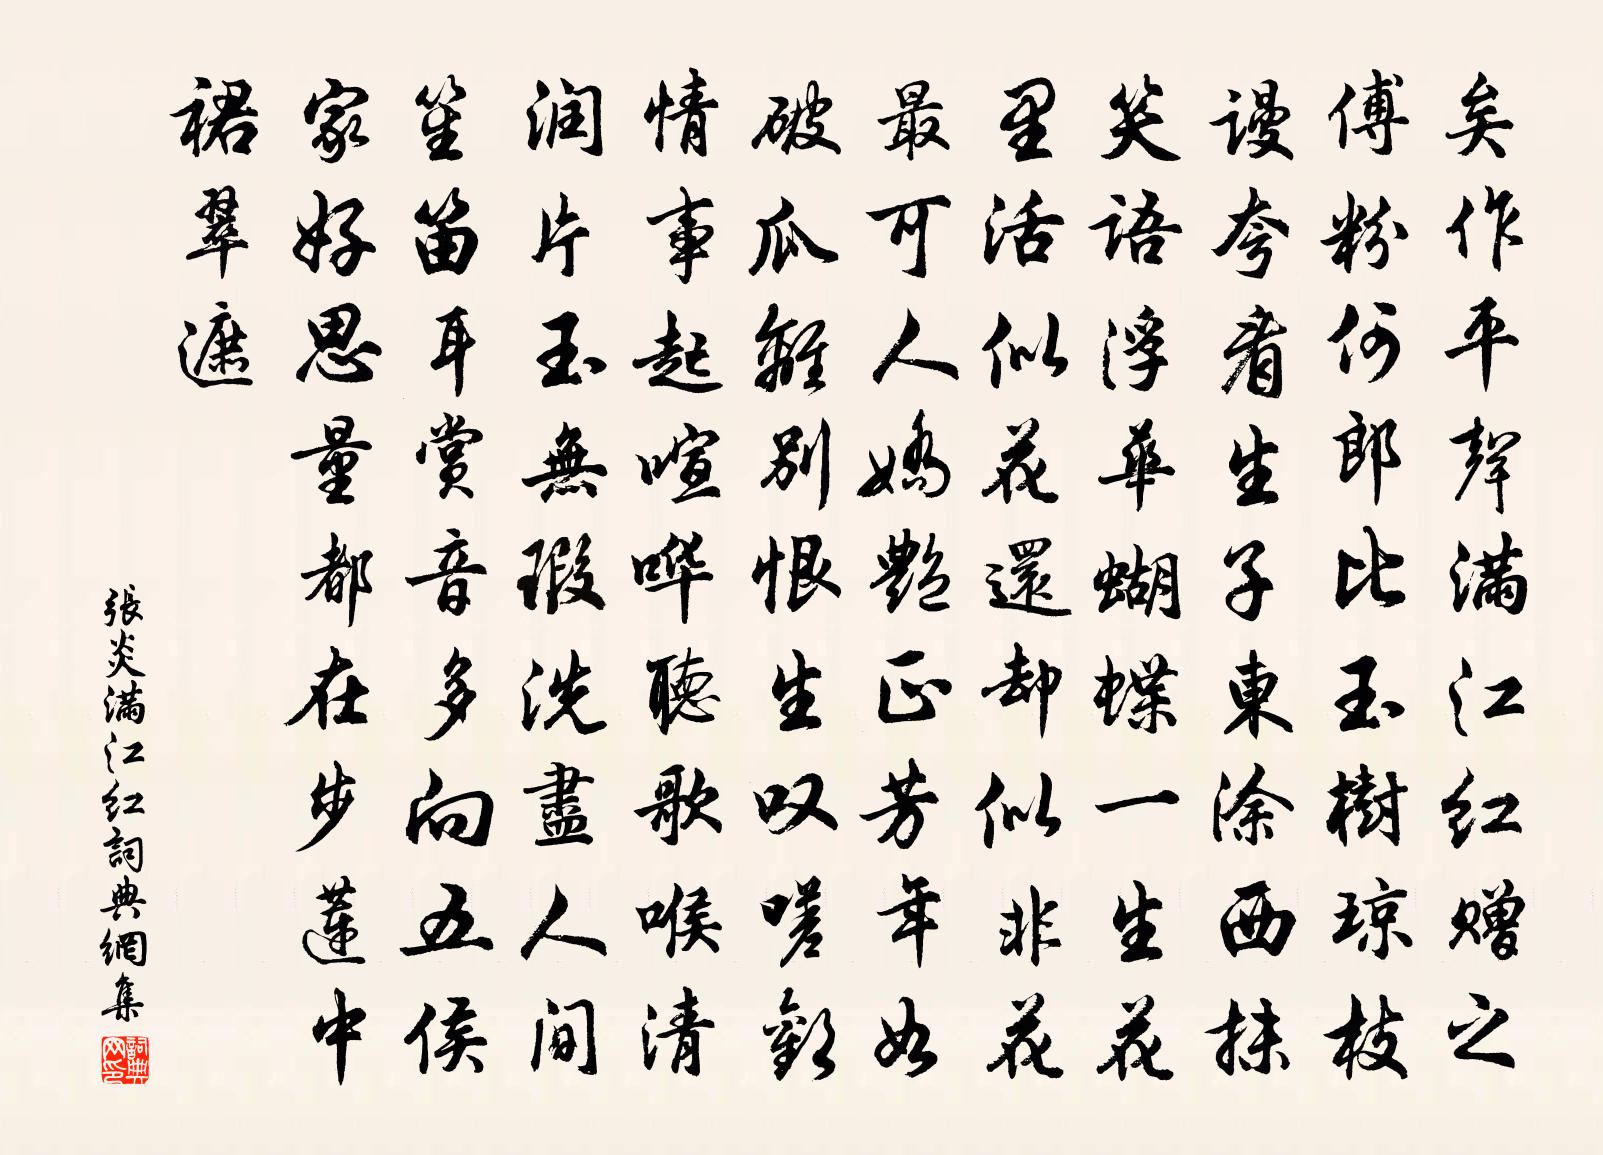 矣作平聲满江红赠之
傅粉何郎比玉樹琼枝
谩夸看生子東涂西抹
笑語浮華蝴蝶一生花
里活似花還却似非花
最可人嬌艶正芳年如
破瓜離別恨生叹嗟歡
情事起喧哗聽歌喉清
润片玉無瑕洗盡人间
笙笛耳賞音多向五侯
家好思量都在步莲中
裙翠遮
張炎满江红詞典網集
詞典网印